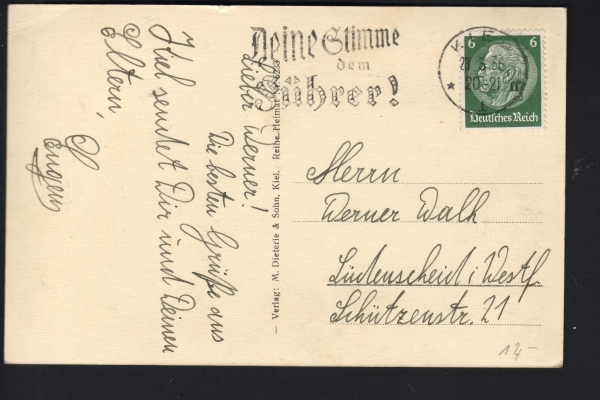 Deine Stimme
dem
Führer!
KIEL
20-21
1
6 6
Deutsches Reich
Lieber Werner!
Die besten Grüße aus
Kiel sendet Dir und Deinen
Eltern,
Eugen
— Verlag: M. Dieterle & Sohn, Kiel. Reihe Heimat
Herrn
Werner Walh
Lüdenscheid i. Westf.
Schützenstr. 21
12-